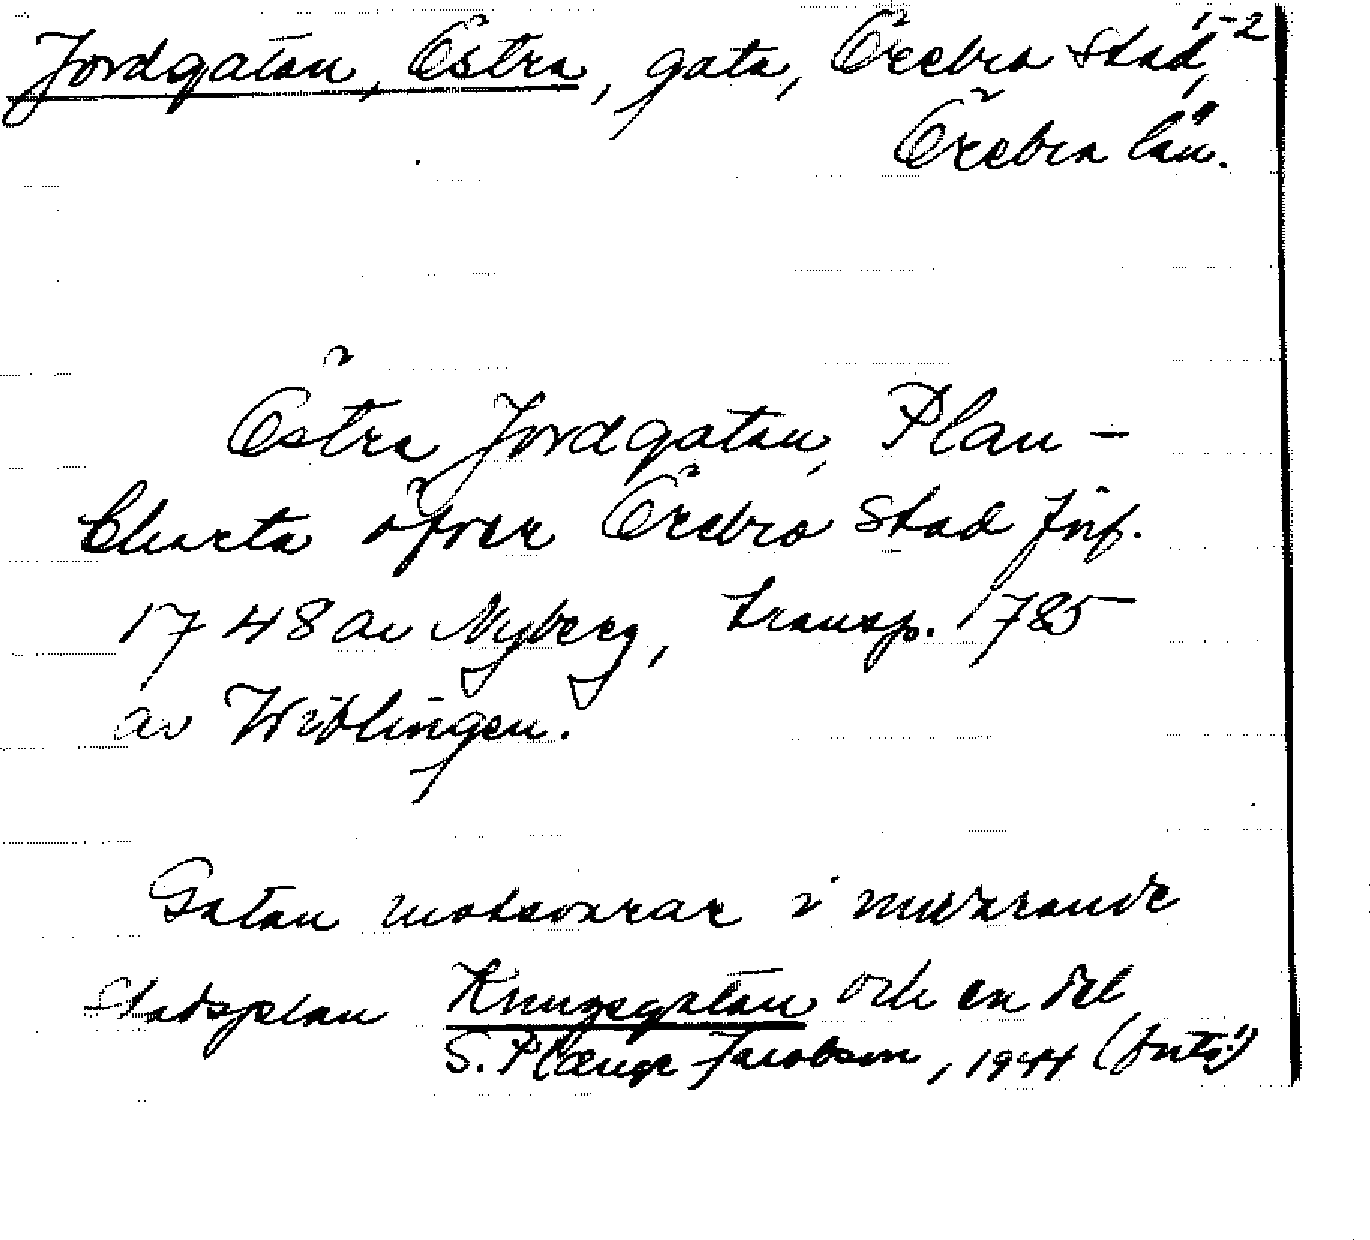 1-2
Jordgatan, Östra, gata, Örebro stad,
Örebro län.
Östra Jordgatan, Plan-
Charta öfver Örebro Stad förf.
1748 av Nyberg, transp. 1785
av Wiblingen.
Gatan motsvarar i nuvarande
Stadsplan Kungsgatan och en del
S. Plange Jacobson, 1944 (forts.)